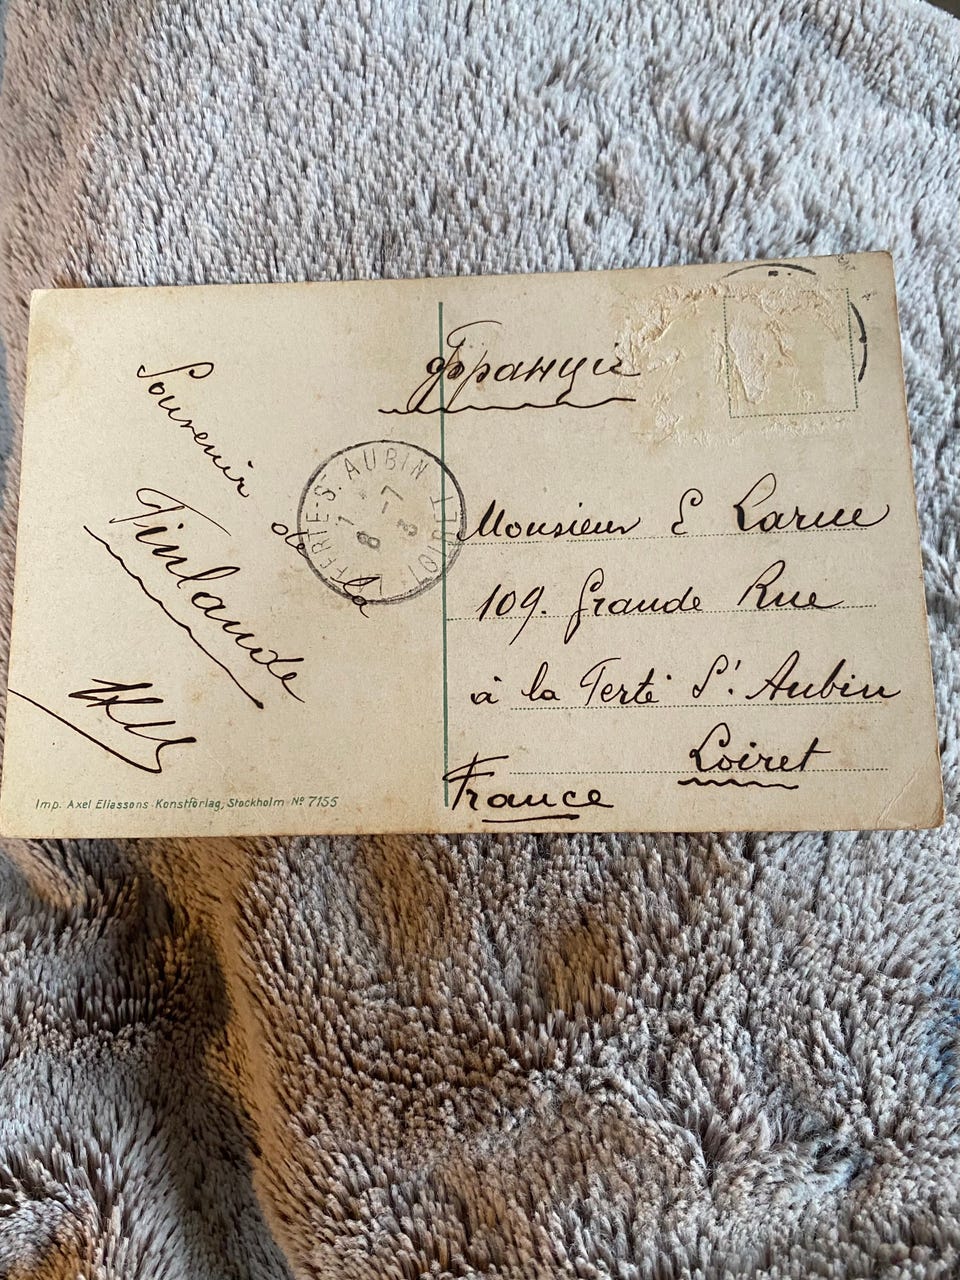 Souvenir
de la
Finlande
Францiя
LA FERTE-ST. AUBIN LOIRET
8-7
Monsieur E Larue
109. Grande Rue
à la Ferté St. Aubin
Loiret
France
Imp. Axel Eliassons Konstförlag, Stockholm Nº 7155